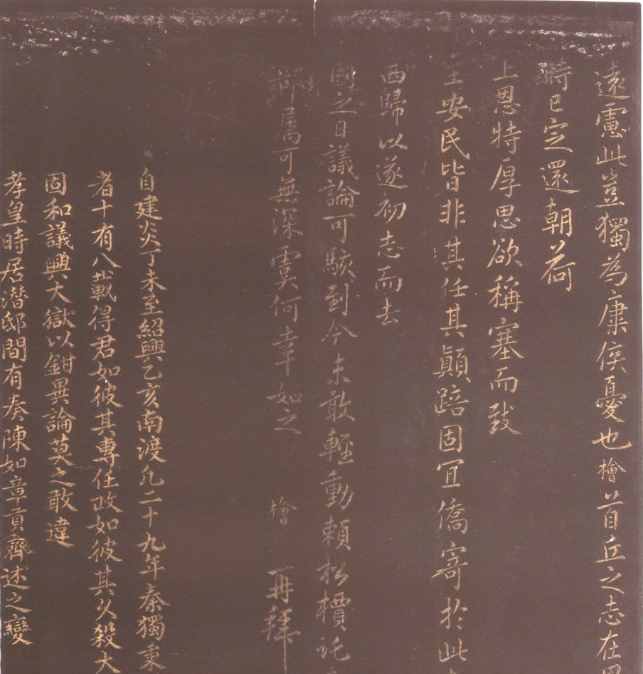 遠慮此豈獨為康侯憂也檜首丘之志在
時已定還朝荷
上恩特厚思欲稱塞而致
主安民皆非其任其顛踣固宜僑寄於此
西歸以遂初志而去
國之日議論可駭到今未敢輕動賴松檟託
鄉焉可無深虞何幸如之 檜 再拜
自建炎丁未至紹興乙亥南渡凡二十九年秦獨秉
者十有八載得君如彼其專任政如彼其久殺大
固和議興大獄以鉗異論莫之敢違
孝皇時居潛邸間有奏陳如章貢齊述之變